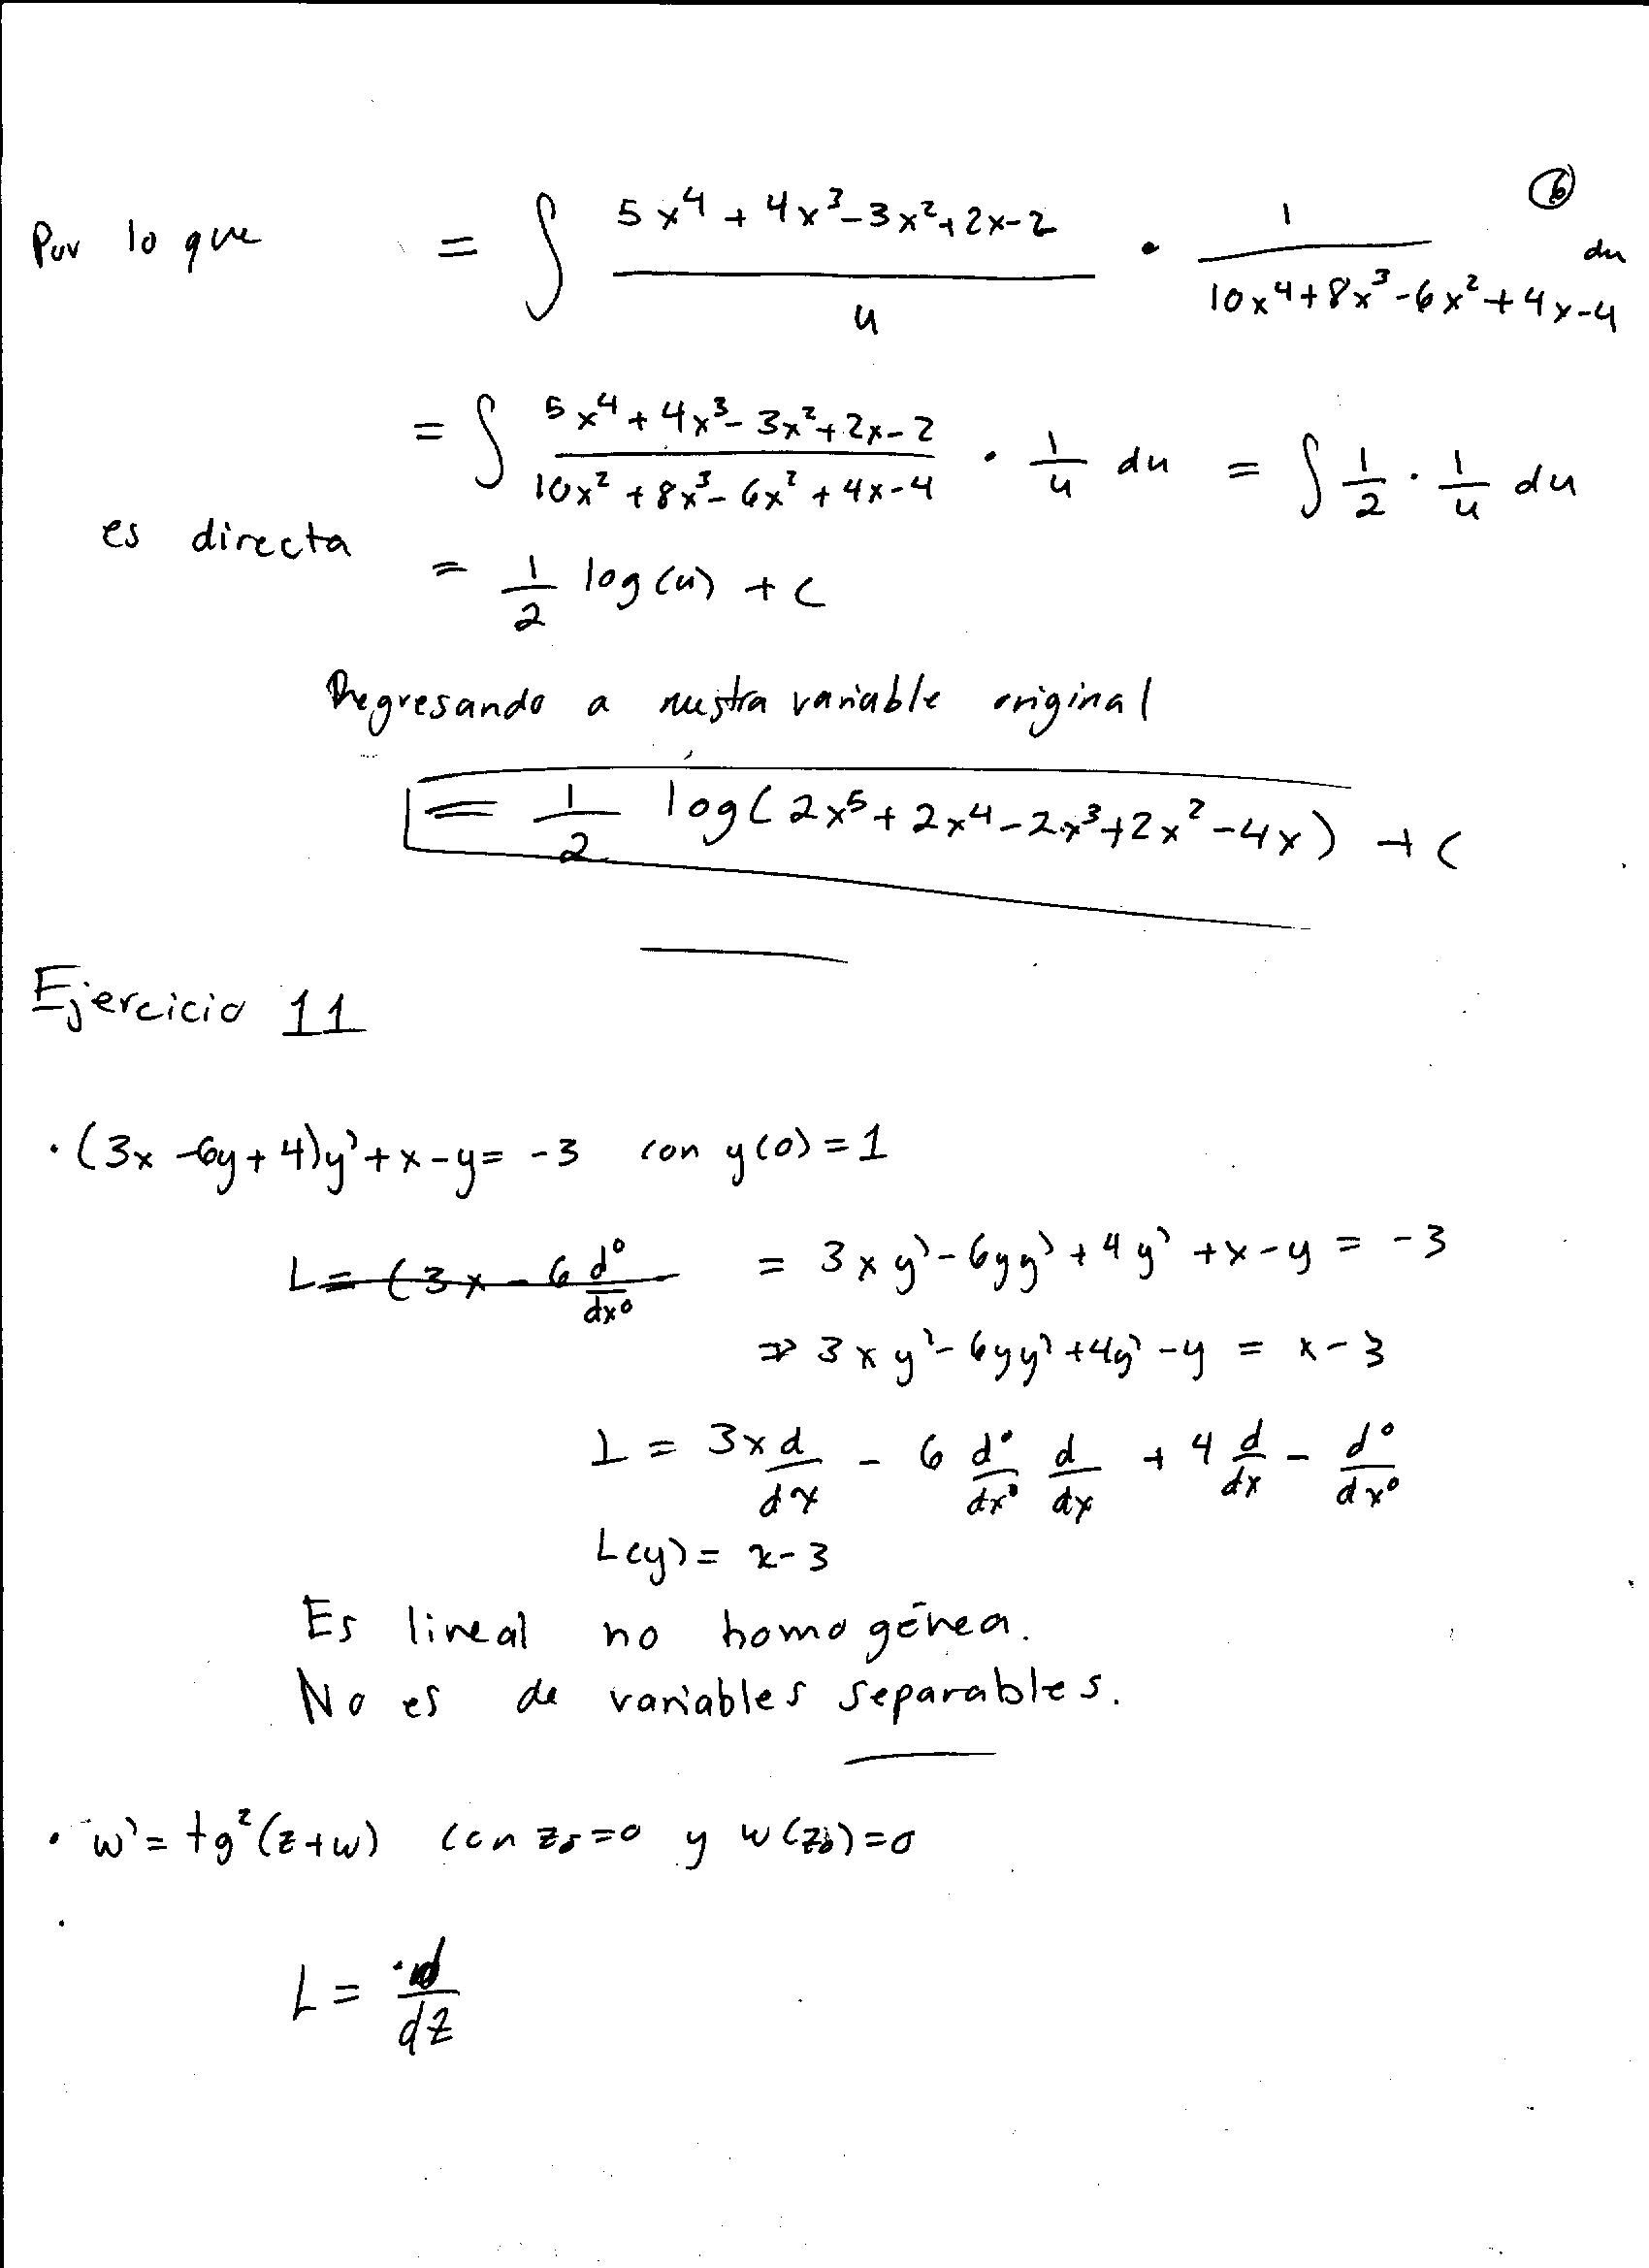 ⑥
Por lo que = ∫ (5x⁴ + 4x³ - 3x² + 2x - 2)/u · 1/(10x⁴ + 8x³ - 6x² + 4x - 4) du
= ∫ (5x⁴ + 4x³ - 3x² + 2x - 2)/(10x² + 8x³ - 6x² + 4x - 4) · 1/u du = ∫ 1/2 · 1/u du
es directa = 1/2 log(u) + C
Regresando a nustra variable original
= 1/2 log(2x⁵ + 2x⁴ - 2x³ + 2x² - 4x) + C
Ejercicio 11
· (3x - 6y + 4)y' + x - y = -3 con y(0) = 1
L = (3x - 6 d⁰/dx⁰ = 3xy' - 6yy' + 4y' + x - y = -3
⇒ 3xy' - 6yy' + 4y' - y = x - 3
L = 3x d/dx - 6 d⁰/dx⁰ d/dx + 4 d/dx - d⁰/dx⁰
L(y) = x - 3
Es lineal no homogénea.
No es de variables separables.
· w' = tg²(z + w) con z₀ = 0 y w(z₀) = 0
L = d/dz